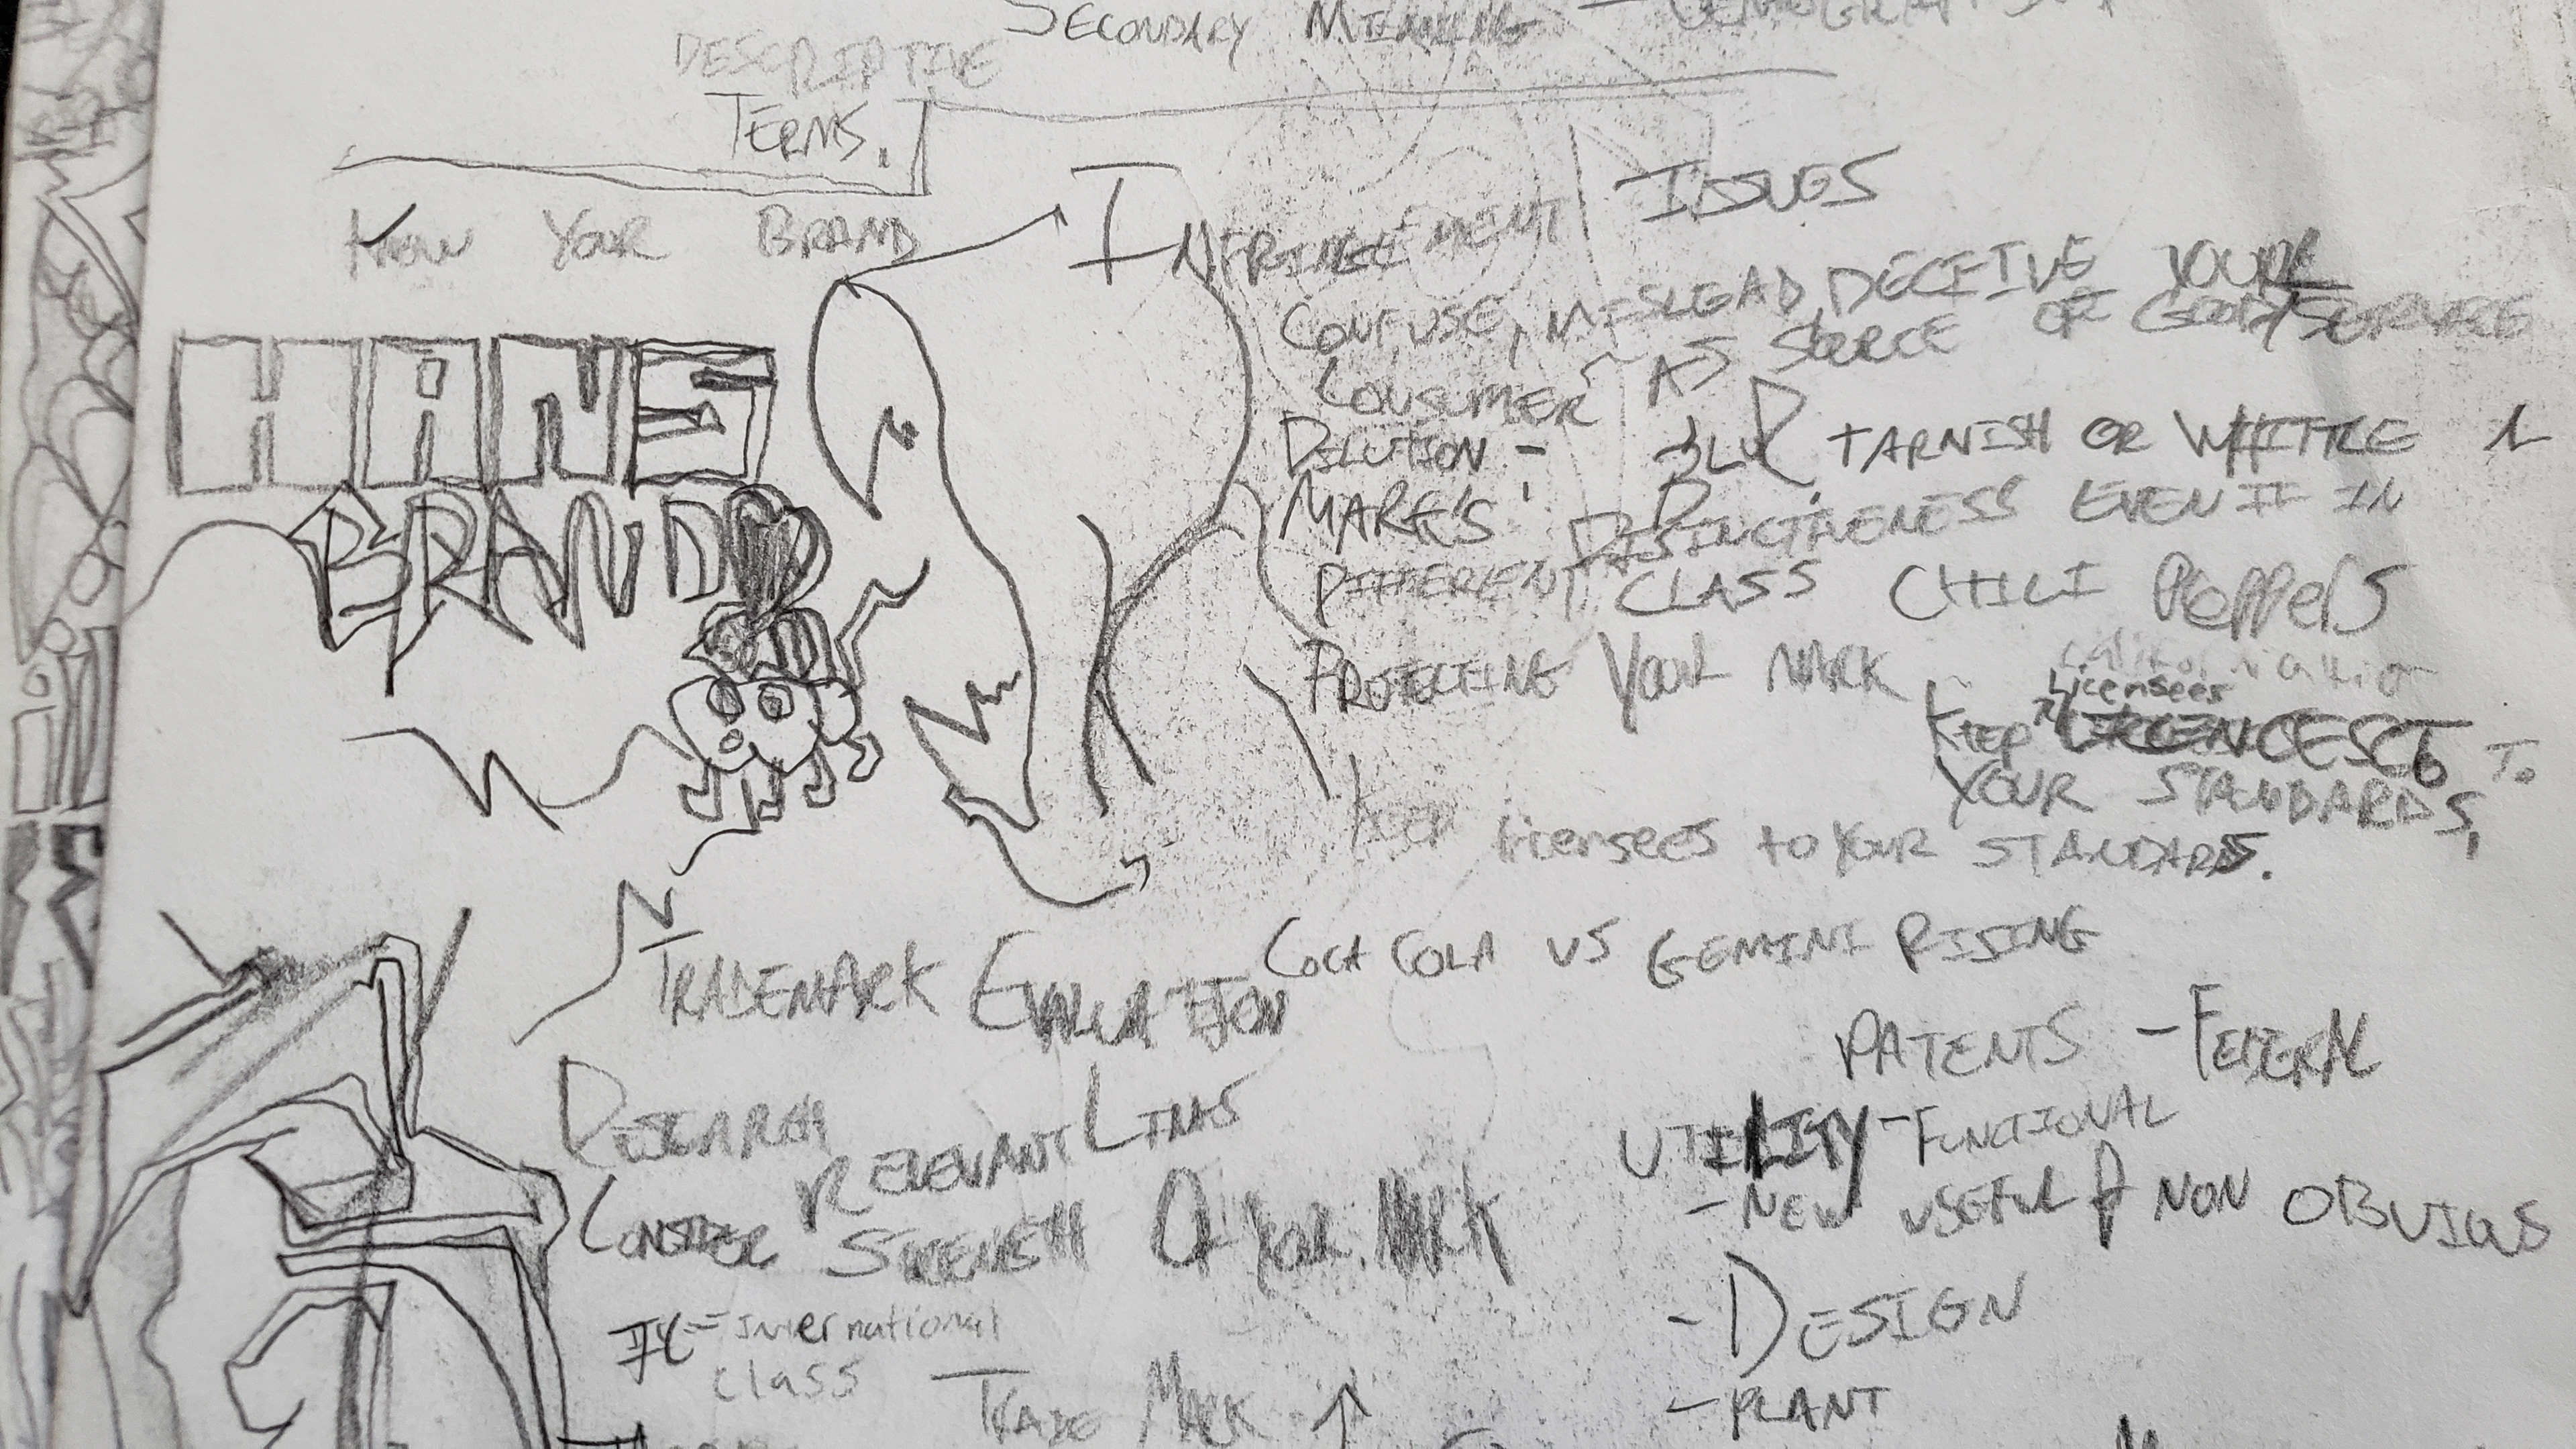 SECONDARY MEANING -
DESCRIPTIVE
TERMS.
KNOW YOUR BRAND
INFRINGEMENT ISSUES
CONFUSE, MISLEAD, DECEIVE YOUR
CONSUMER AS SOURCE OF GOOD/SERVICE
DILUTION - BLUR, TARNISH OR WHITTLE A
MARK'S DISTINCTIVENESS EVEN IF IN
DIFFERENT CLASS CHILI PEPPERS
BRAND
PROTECTING YOUR MARK
Licensees
KEEP TO
YOUR STANDARDS,
Keep licensees to YOUR STANDARDS.
TRADEMARK EVALUATION
COCA COLA VS GEMINI RISING
RESEARCH
RELEVANT LINKS
CONSIDER STRENGTH OF YOUR MARK
IC = International
class
TRADE MARK
PATENTS - FEDERAL
UTILITY - FUNCTIONAL
- NEW USEFUL & NON OBVIOUS
- DESIGN
- PLANT